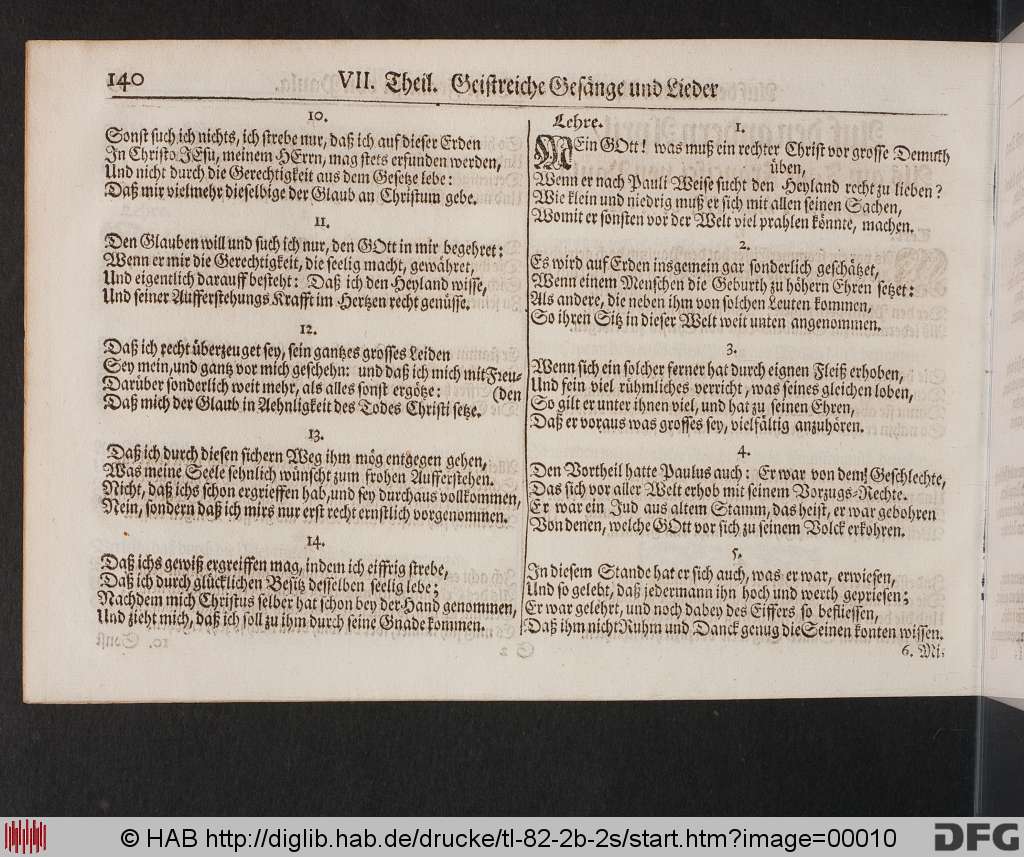 140
VII. Theil. Geistreiche Gesänge und Lieder
10.
Sonst such ich nichts, ich strebe nur, daß ich auf dieser Erden
In Christo JEsu, meinem HErrn, mag stets erfunden werden,
Und nicht durch die Gerechtigkeit aus dem Gesetze lebe:
Daß mir vielmehr dieselbige der Glaub an Christum gebe.
11.
Den Glauben will und such ich nur, den GOtt in mir begehret:
Wenn er mir die Gerechtigkeit, die seelig macht, gewähret,
Und eigentlich darauff besteht: Daß ich den Heyland wisse,
Und seiner Aufferstehungs Krafft im Hertzen recht genüsse.
12.
Daß ich recht überzeuget sey, sein gantzes grosses Leiden
Sey mein, und gantz vor mich geschehn: und daß ich mich mit Freu-
Darüber sonderlich weit mehr, als alles sonst ergötze: (den
Daß mich der Glaub in Aehnligkeit des Todes Christi setze.
13.
Daß ich durch diesen sichern Weg ihm mög entgegen gehen,
Was meine Seele sehnlich wünscht zum frohen Aufferstehen.
Nicht, daß ichs schon ergrieffen hab, und sey durchaus vollkommen,
Nein, sondern daß ich mirs nur erst recht ernstlich vorgenommen.
14.
Daß ichs gewiß ergreiffen mag, indem ich eiffrig strebe,
Daß ich durch glücklichen Besitz desselben seelig lebe;
Nachdem mich Christus selber hat schon bey der Hand genommen,
Und zieht mich, daß ich soll zu ihm durch seine Gnade kommen.
Lehre.
1.
MEin GOtt! was muß ein rechter Christ vor grosse Demuth
üben,
Wenn er nach Pauli Weise sucht den Heyland recht zu lieben?
Wie klein und niedrig muß er sich mit allen seinen Sachen,
Womit er sonsten vor der Welt viel prahlen könnte, machen.
2.
Es wird auf Erden insgemein gar sonderlich geschätzet,
Wenn einem Menschen die Geburth zu höhern Ehren setzet:
Als andere, die neben ihm von solchen Leuten kommen,
So ihren Sitz in dieser Welt weit unten angenommen.
3.
Wenn sich ein solcher ferner hat durch eignen Fleiß erhoben,
Und fein viel rühmliches verricht, was seines gleichen loben,
So gilt er unter ihnen viel, und hat zu seinen Ehren,
Daß er voraus was grosses sey, vielfältig anzuhören.
4.
Den Vortheil hatte Paulus auch: Er war von dem Geschlechte,
Das sich vor aller Welt erhob mit seinem Vorzugs-Rechte.
Er war ein Jud aus altem Stamm, das heist, er war gebohren
Von denen, welche GOtt vor sich zu seinem Volck erkohren.
5.
In diesem Stande hat er sich auch, was er war, erwiesen,
Und so gelebt, daß jedermann ihn hoch und werth gepriesen;
Er war gelehrt, und noch dabey des Eiffers so beflissen,
Daß ihm nicht Ruhm und Danck genug die Seinen konten wissen.
6. Mi-
© HAB http://diglib.hab.de/drucke/tl-82-2b-2s/start.htm?image=00010
DFG